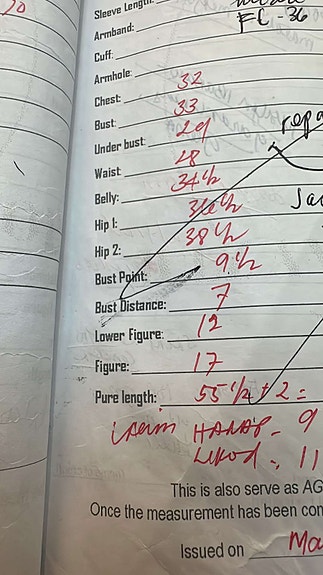 20
Sleeve Length:
FC - 36
Armband:
Cuff:
Armhole:
Chest: 32
Bust: 33
Under bust: 29
Waist 28
Belly: 34 1/2
Hip 1: 36 1/2
Hip 2: 38 1/2
Bust Point: 9 1/2
Bust Distance: 7
Lower Figure: 12
Figure: 17
Pure length: 55 1/2 + 2 =
9
11
This is also serve as AG
Once the measurement has been con
Issued on Ma